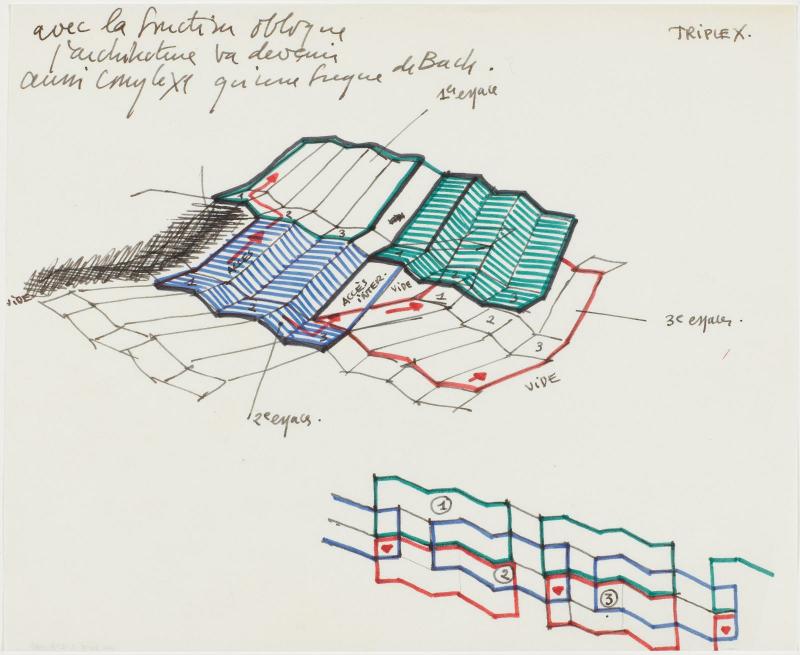 avec la fonction oblique
l'architecture va devenir
aussi complexe qu'une fugue de Bach.
TRIPLEX.
1er espace
1
2
3
ACCÈS
1
2
3
ACCÈS INTER.
VIDE
1
2
3
1
2
3
VIDE
3e espace.
VIDE
2e espace.
1
2
3